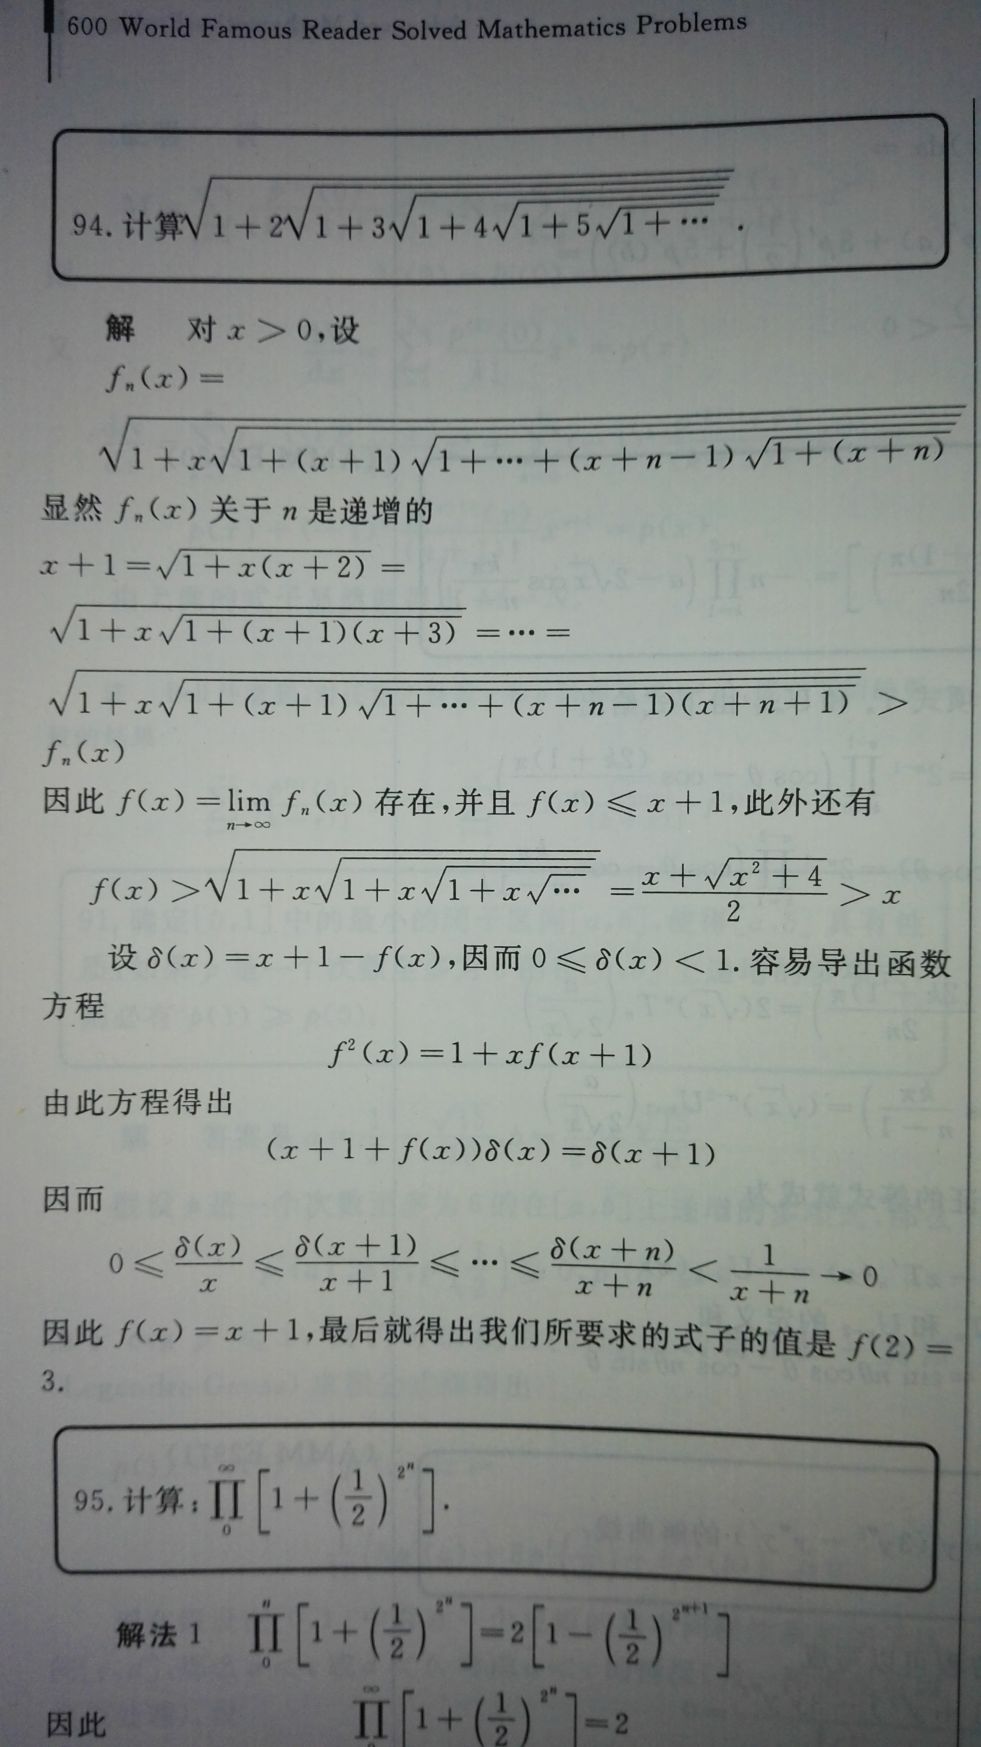 600 World Famous Reader Solved Mathematics Problems
94. 计算√(1+2√(1+3√(1+4√(1+5√(1+⋯))))).
解 对 x>0,设
fₙ(x)=
√(1+x√(1+(x+1)√(1+⋯+(x+n-1)√(1+(x+n)))))
显然 fₙ(x)关于 n 是递增的
x+1=√(1+x(x+2))=
√(1+x√(1+(x+1)(x+3)))=⋯=
√(1+x√(1+(x+1)√(1+⋯+(x+n-1)(x+n+1))))>
fₙ(x)
因此 f(x)=lim_{n→∞} fₙ(x)存在,并且 f(x)≤x+1,此外还有
f(x)>√(1+x√(1+x√(1+x√⋯)))=(x+√(x²+4))/2>x
设 δ(x)=x+1-f(x),因而 0≤δ(x)<1. 容易导出函数
方程
f²(x)=1+xf(x+1)
由此方程得出
(x+1+f(x))δ(x)=δ(x+1)
因而
0≤δ(x)/x≤δ(x+1)/(x+1)≤⋯≤δ(x+n)/(x+n)<1/(x+n)→0
因此 f(x)=x+1,最后就得出我们所要求的式子的值是 f(2)=
3.
95. 计算:∏₀^∞[1+(1/2)^{2ⁿ}].
解法 1 ∏₀ⁿ[1+(1/2)^{2ⁿ}]=2[1-(1/2)^{2ⁿ⁺¹}]
因此 ∏^∞[1+(1/2)^{2ⁿ}]=2